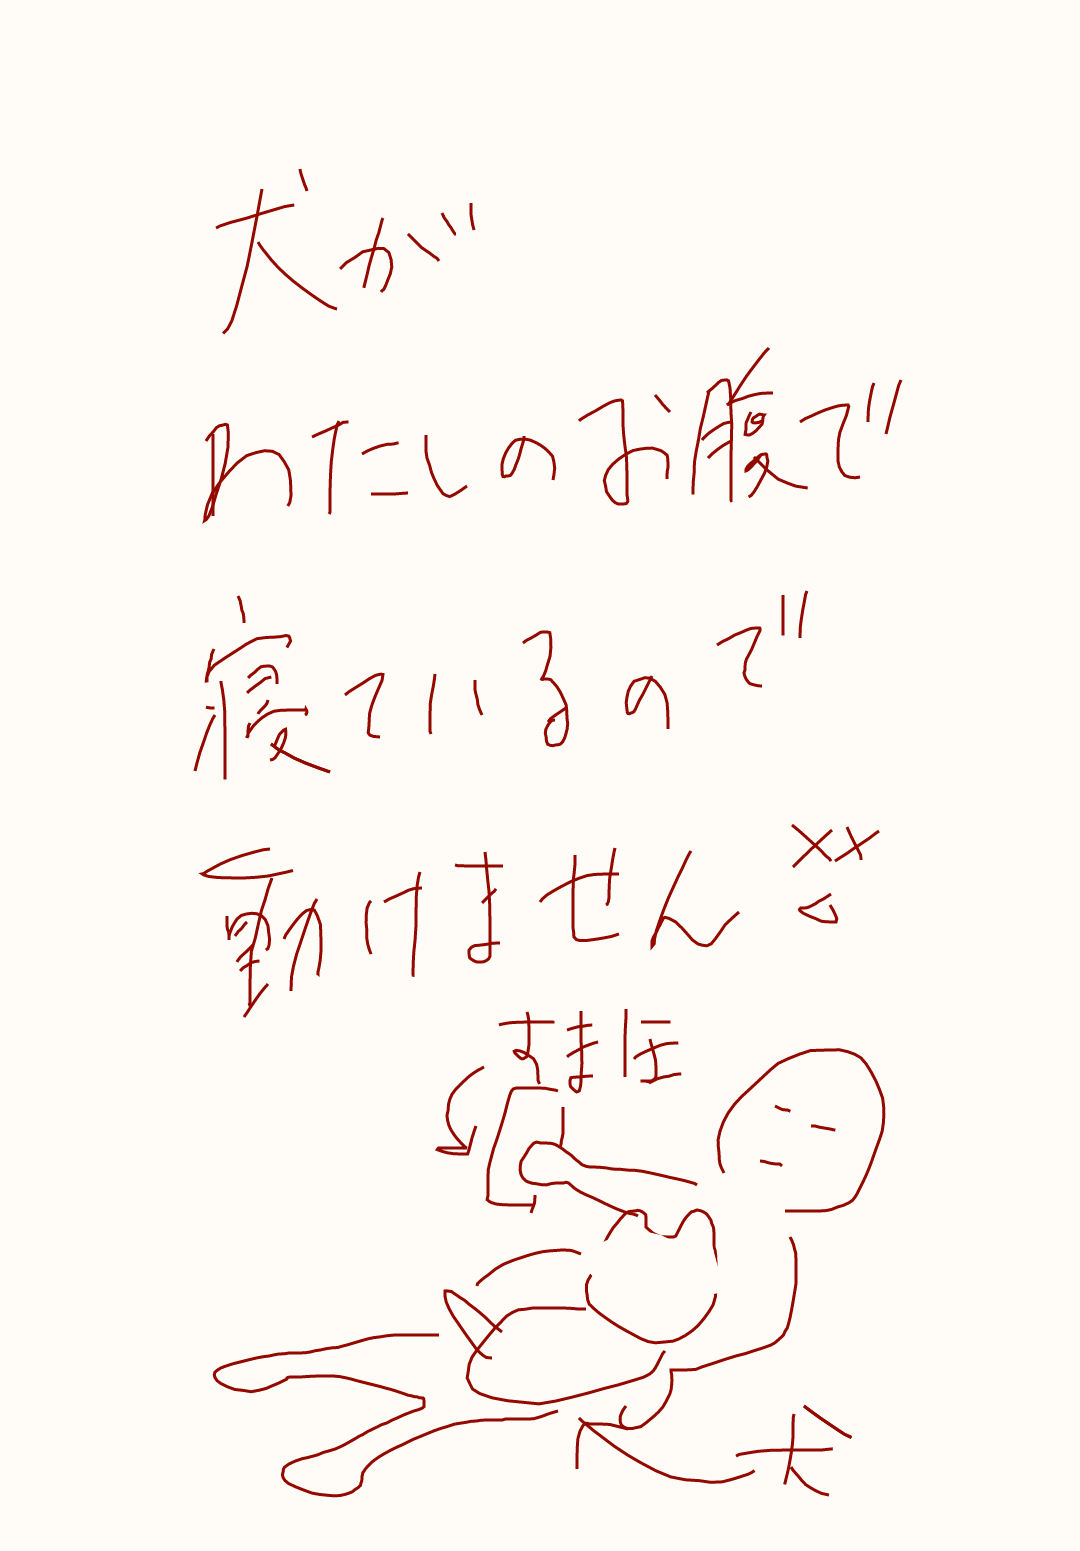 犬が
わたしのお腹で
寝ているので
動けません
すまほ
犬